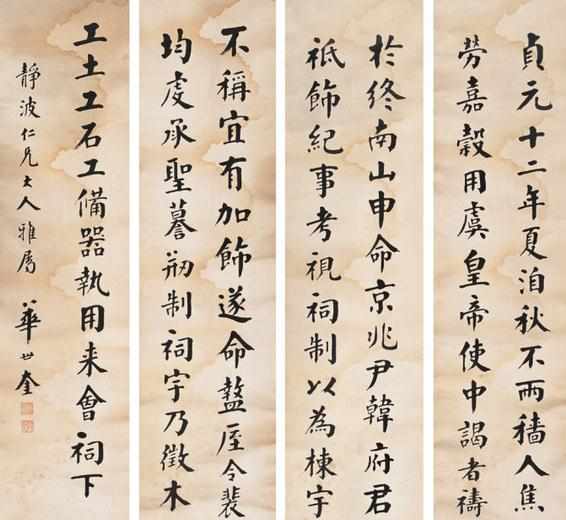 貞元十二年夏洎秋不雨穡人焦
勞嘉穀用虞皇帝使中謁者禱
於終南山申命京兆尹韓府君
祗飾紀事考視祠制以為棟宇
不稱宜有加飾遂命盩厔令裴
均虔承聖謩刱制祠宇乃徵木
工土工石工備器執用来會祠下
靜波仁兄大人雅屬 華世奎